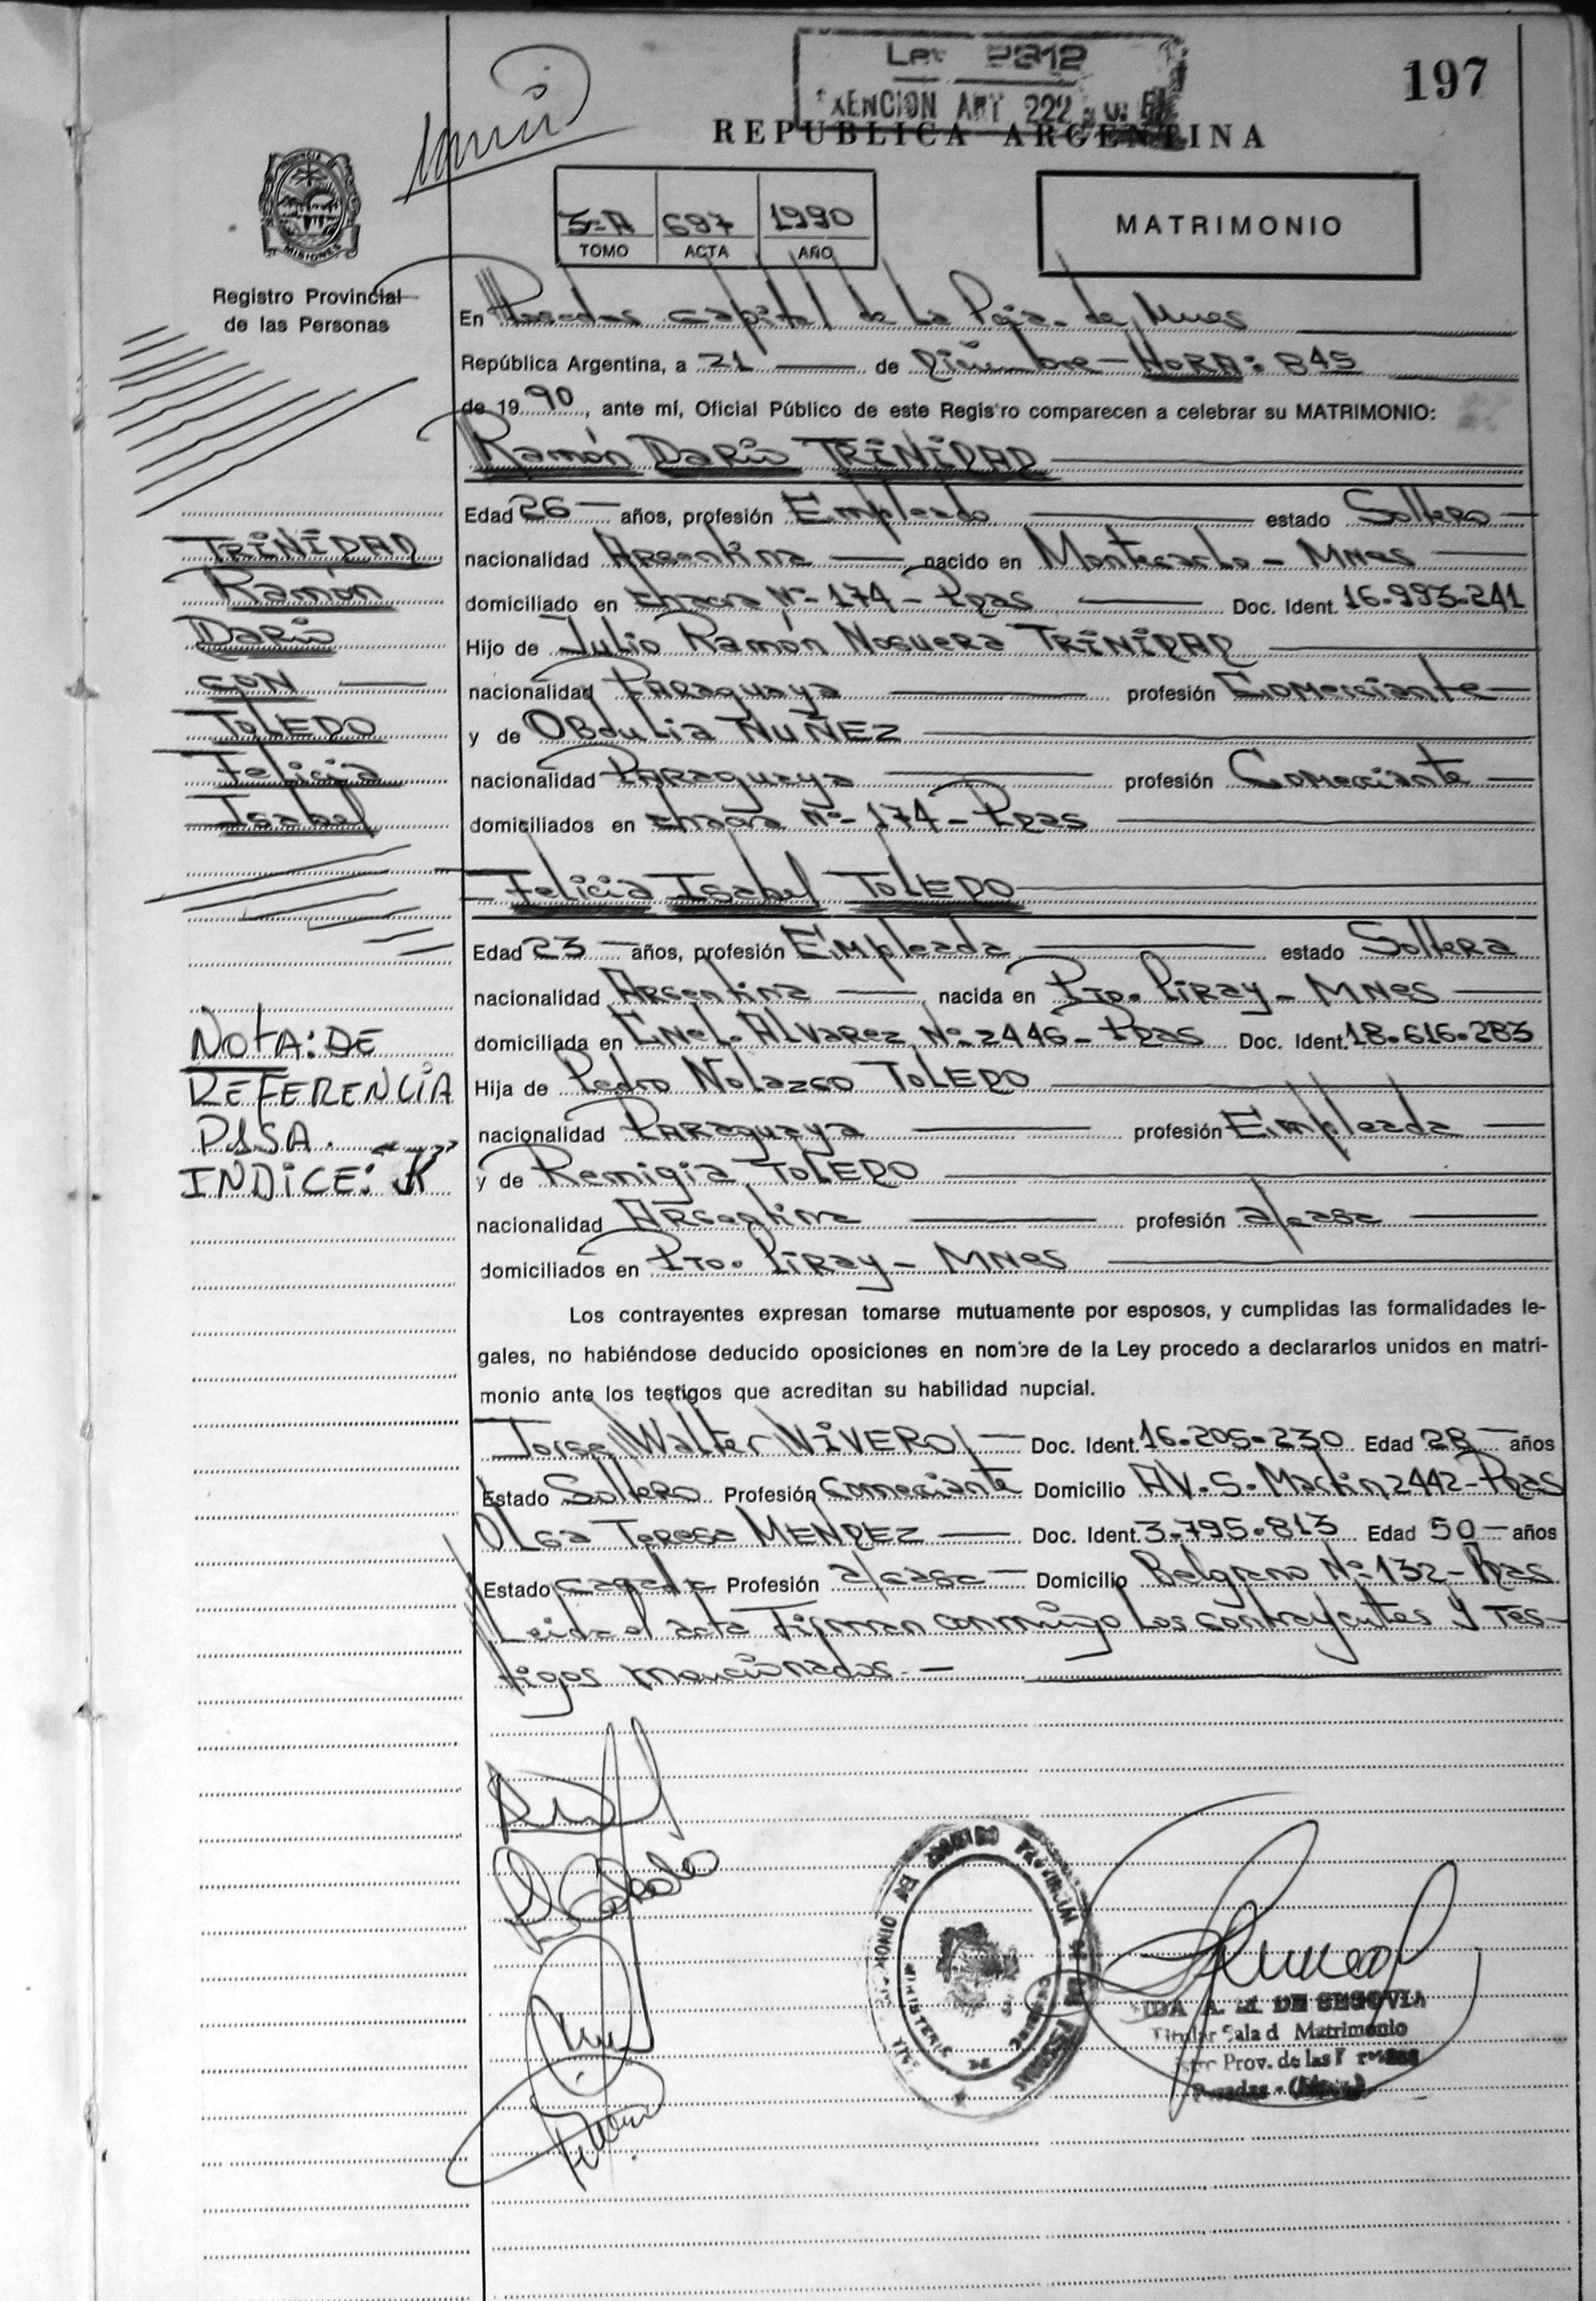 197
Ley 2312
EXENCION ART 222
REPUBLICA ARGENTINA
3-A 697 1990
TOMO ACTA AÑO
MATRIMONIO
PROVINCIA DE MISIONES
Registro Provincial
de las Personas
En Posadas capital de La Pcja. de Mnes
República Argentina, a 21 de Diciembre - HORA: 845
de 1990, ante mí, Oficial Público de este Registro comparecen a celebrar su MATRIMONIO:
Ramón Dario TRINIDAD
Edad 26 años, profesión Empleado estado Soltero
nacionalidad Argentina nacido en Montecarlo - Mnes
domiciliado en chacra Nº- 174 - Pdas Doc. Ident. 16.993.241
Hijo de Julio Ramón Noguera TRINIDAD
nacionalidad Paraguaya profesión Comerciante
y de Obdulia NUÑEZ
nacionalidad Paraguaya profesión Comerciante
domiciliados en chacra Nº- 174 - Pdas
Felicia Isabel TOLEDO
Edad 23 años, profesión Empleada estado Soltera
nacionalidad Argentina nacida en Pto. Piray - Mnes
domiciliada en Cnel. Alvarez Nº 2446 - Pdas Doc. Ident. 18.616.283
Hija de Pedro Nolazco TOLEDO
nacionalidad Paraguaya profesión Empleada
y de Remigia TOLEDO
nacionalidad Argentina profesión a/casa
domiciliados en Pto. Piray - Mnes
Los contrayentes expresan tomarse mutuamente por esposos, y cumplidas las formalidades le-
gales, no habiéndose deducido oposiciones en nombre de la Ley procedo a declararlos unidos en matri-
monio ante los testigos que acreditan su habilidad nupcial.
Jorge Walter VIVERO Doc. Ident. 16.205.230 Edad 28 años
Estado Soltero Profesión Comerciante Domicilio AV. S. Martin 2442 - Pdas
Olga Teresa MENDEZ Doc. Ident. 3.795.813 Edad 50 años
Estado casada Profesión a/casa Domicilio Belgrano Nº 132 - Pdas
Leida el acta Firman conmigo Los contrayentes y Tes-
tigos mencionados. -
TRINIDAD
Ramón
Dario
CON
TOLEDO
Felicia
Isabel
NOTA: DE
REFERENCIA
P1SA.
INDICE: K
A. M. DE SEGOVIA
Titular Sala d Matrimonio
Prov. de las
Posadas - (Mnes)